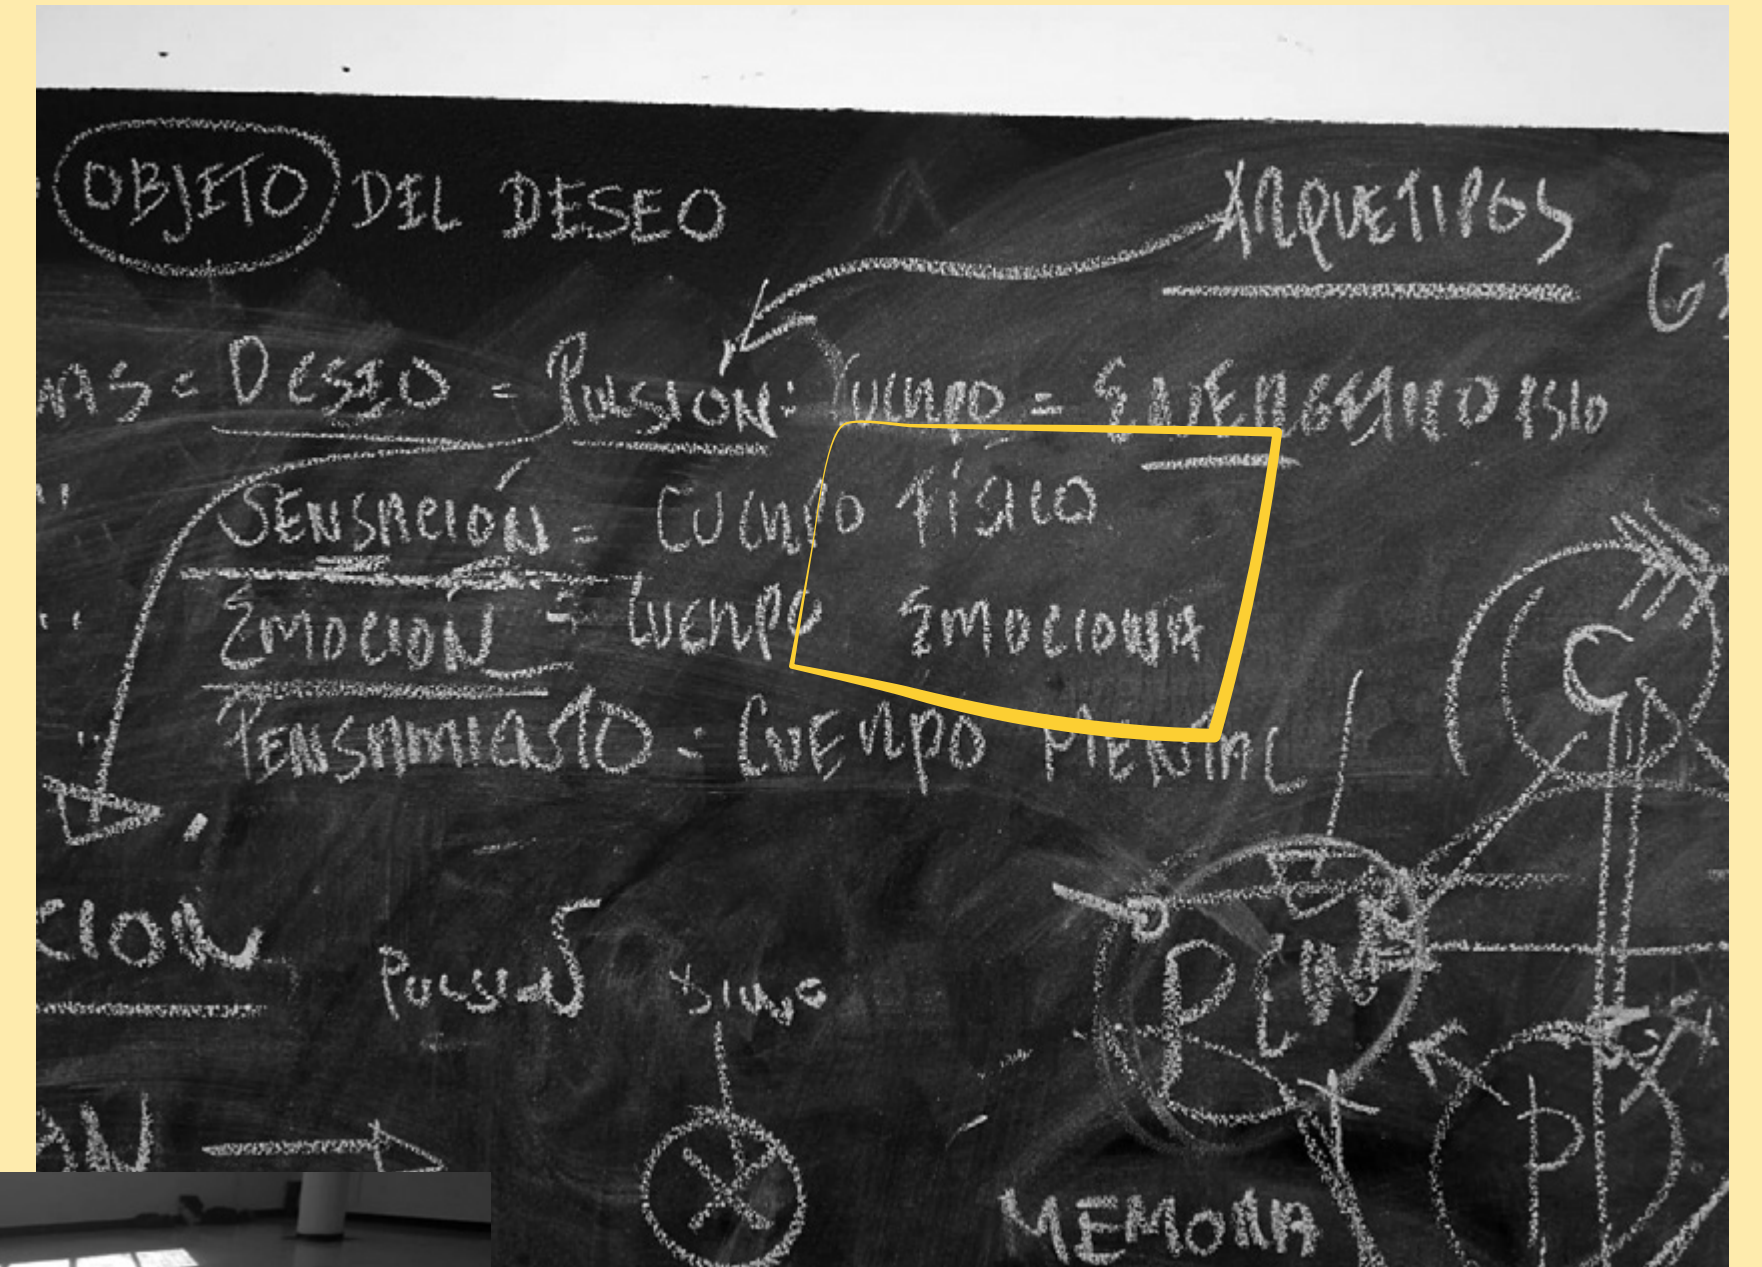 OBJETO DEL DESEO
ARQUETIPOS
DESEO = PULSION: CUERPO = ENERGETICO
SENSACIÓN = CUERPO FÍSICO
EMOCION = CUERPO EMOCIONA
PENSAMIENTO = CUERPO MENTAL
CION
PULSION
C
P
MEMORIA